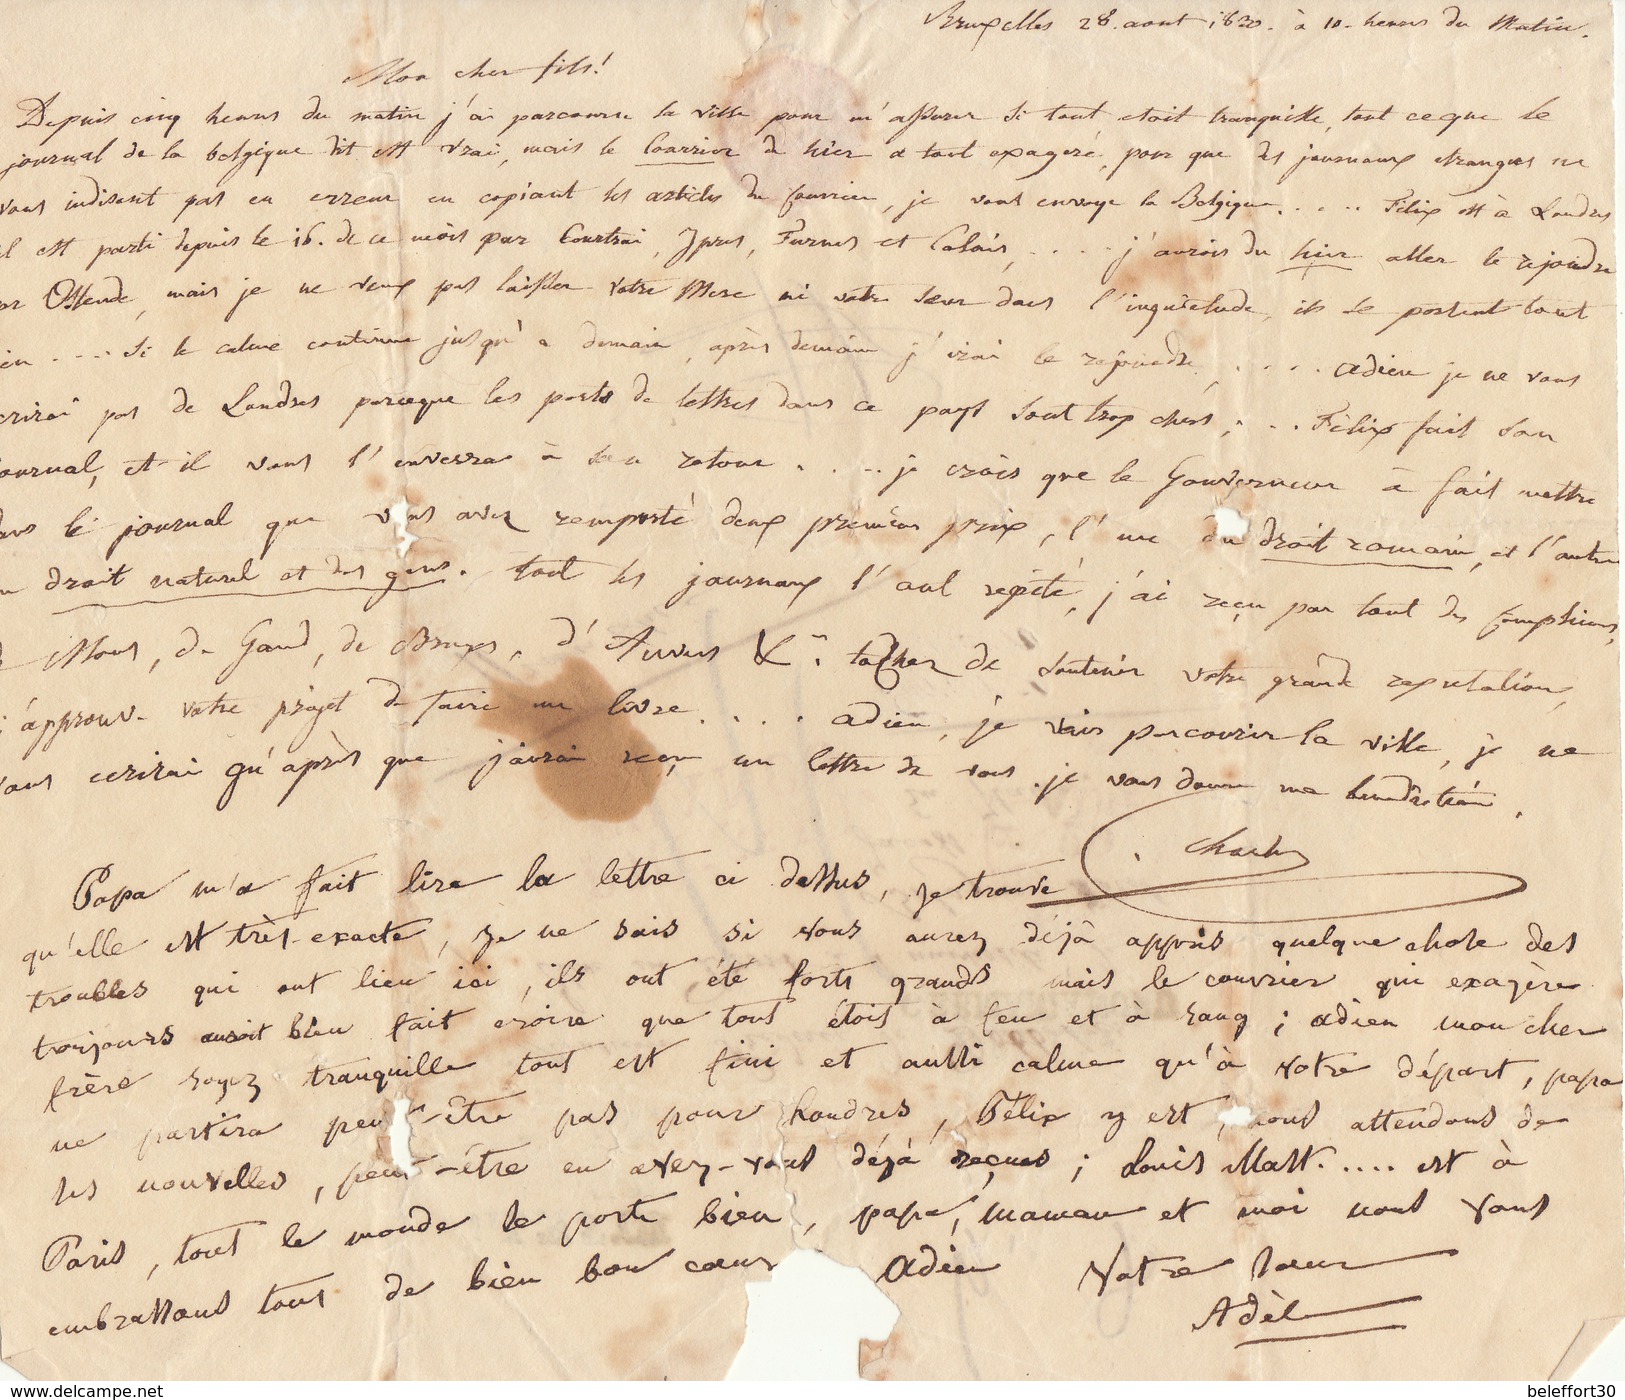 Bruxelles 28. aout 1830. à 10. heures du Matin.
Mon cher fils!
Depuis cinq heures du matin j'ai parcouru la ville pour m'assurer si tout etoit tranquille, tout ceque le
journal de la belgique dit est vrai, mais le Courrier de hier a tout exageré, pour que des journaux etrangers ne
vous indisent pas en erreur en copiant les articles du Courrier, je vous envoye la Belgique..... Felix est à Londres
il est parti depuis le 16. de ce mois par Courtrai, Ypres, Furnes et Calais, .... j'aurois du hier aller le rejoindre
Ostende, mais je ne veux pas laisser votre Mere ni votre sœur dans l'inquiétude, ils se portent tout
.... si le calme continue jusqu'a demain, après demain j'irai le rejoindre, .... adieu je ne vous
ecrirai pas de Londres parceque les ports de lettres dans ce pays sont trop chers; ... Félix fait son
journal, et il vous l'enverra à son retour .... je crois que le Gouverneur à fait mettre
dans le journal que vous avez remporté deux premiers prix, l'un du droit romain, et l'autre
droit naturel et des gens. tout les journaux l'ont repété, j'ai reçu par tout des Complimens,
de Mons, de Gand, de Bruges, d'Anvers &c. tachez de soutenir votre grande reputation,
j'approuve votre projet de faire un livre .... adieu, je vais parcourir la ville, je ne
vous ecrirai qu'après que j'aurai reçu un lettre de vous. je vous donne ma benediction.
Charles
Papa m'a fait lire la lettre ci dessus, je trouve
qu'elle est très-exacte, je ne sais si vous aurez déjà appris quelque chose des
troubles qui ont lieu ici, ils ont été forts grands mais le courrier qui exagère
toujours auroit bien fait croire que tout étoit à feu et à sang; adieu mon cher
frère soyez tranquille tout est fini et aussi calme qu'à votre départ, papa
ne partira peut-être pas pour Londres, Félix y est, nous attendons de
ses nouvelles, peut-être en avez-vous déjà reçues; Louis Mast..... est à
Paris, tout le monde se porte bien, papa, maman et moi nous vous
embrassons tout de bien bon cœur adieu Votre sœur
Adèle
© www.delcampe.net
beleffort30